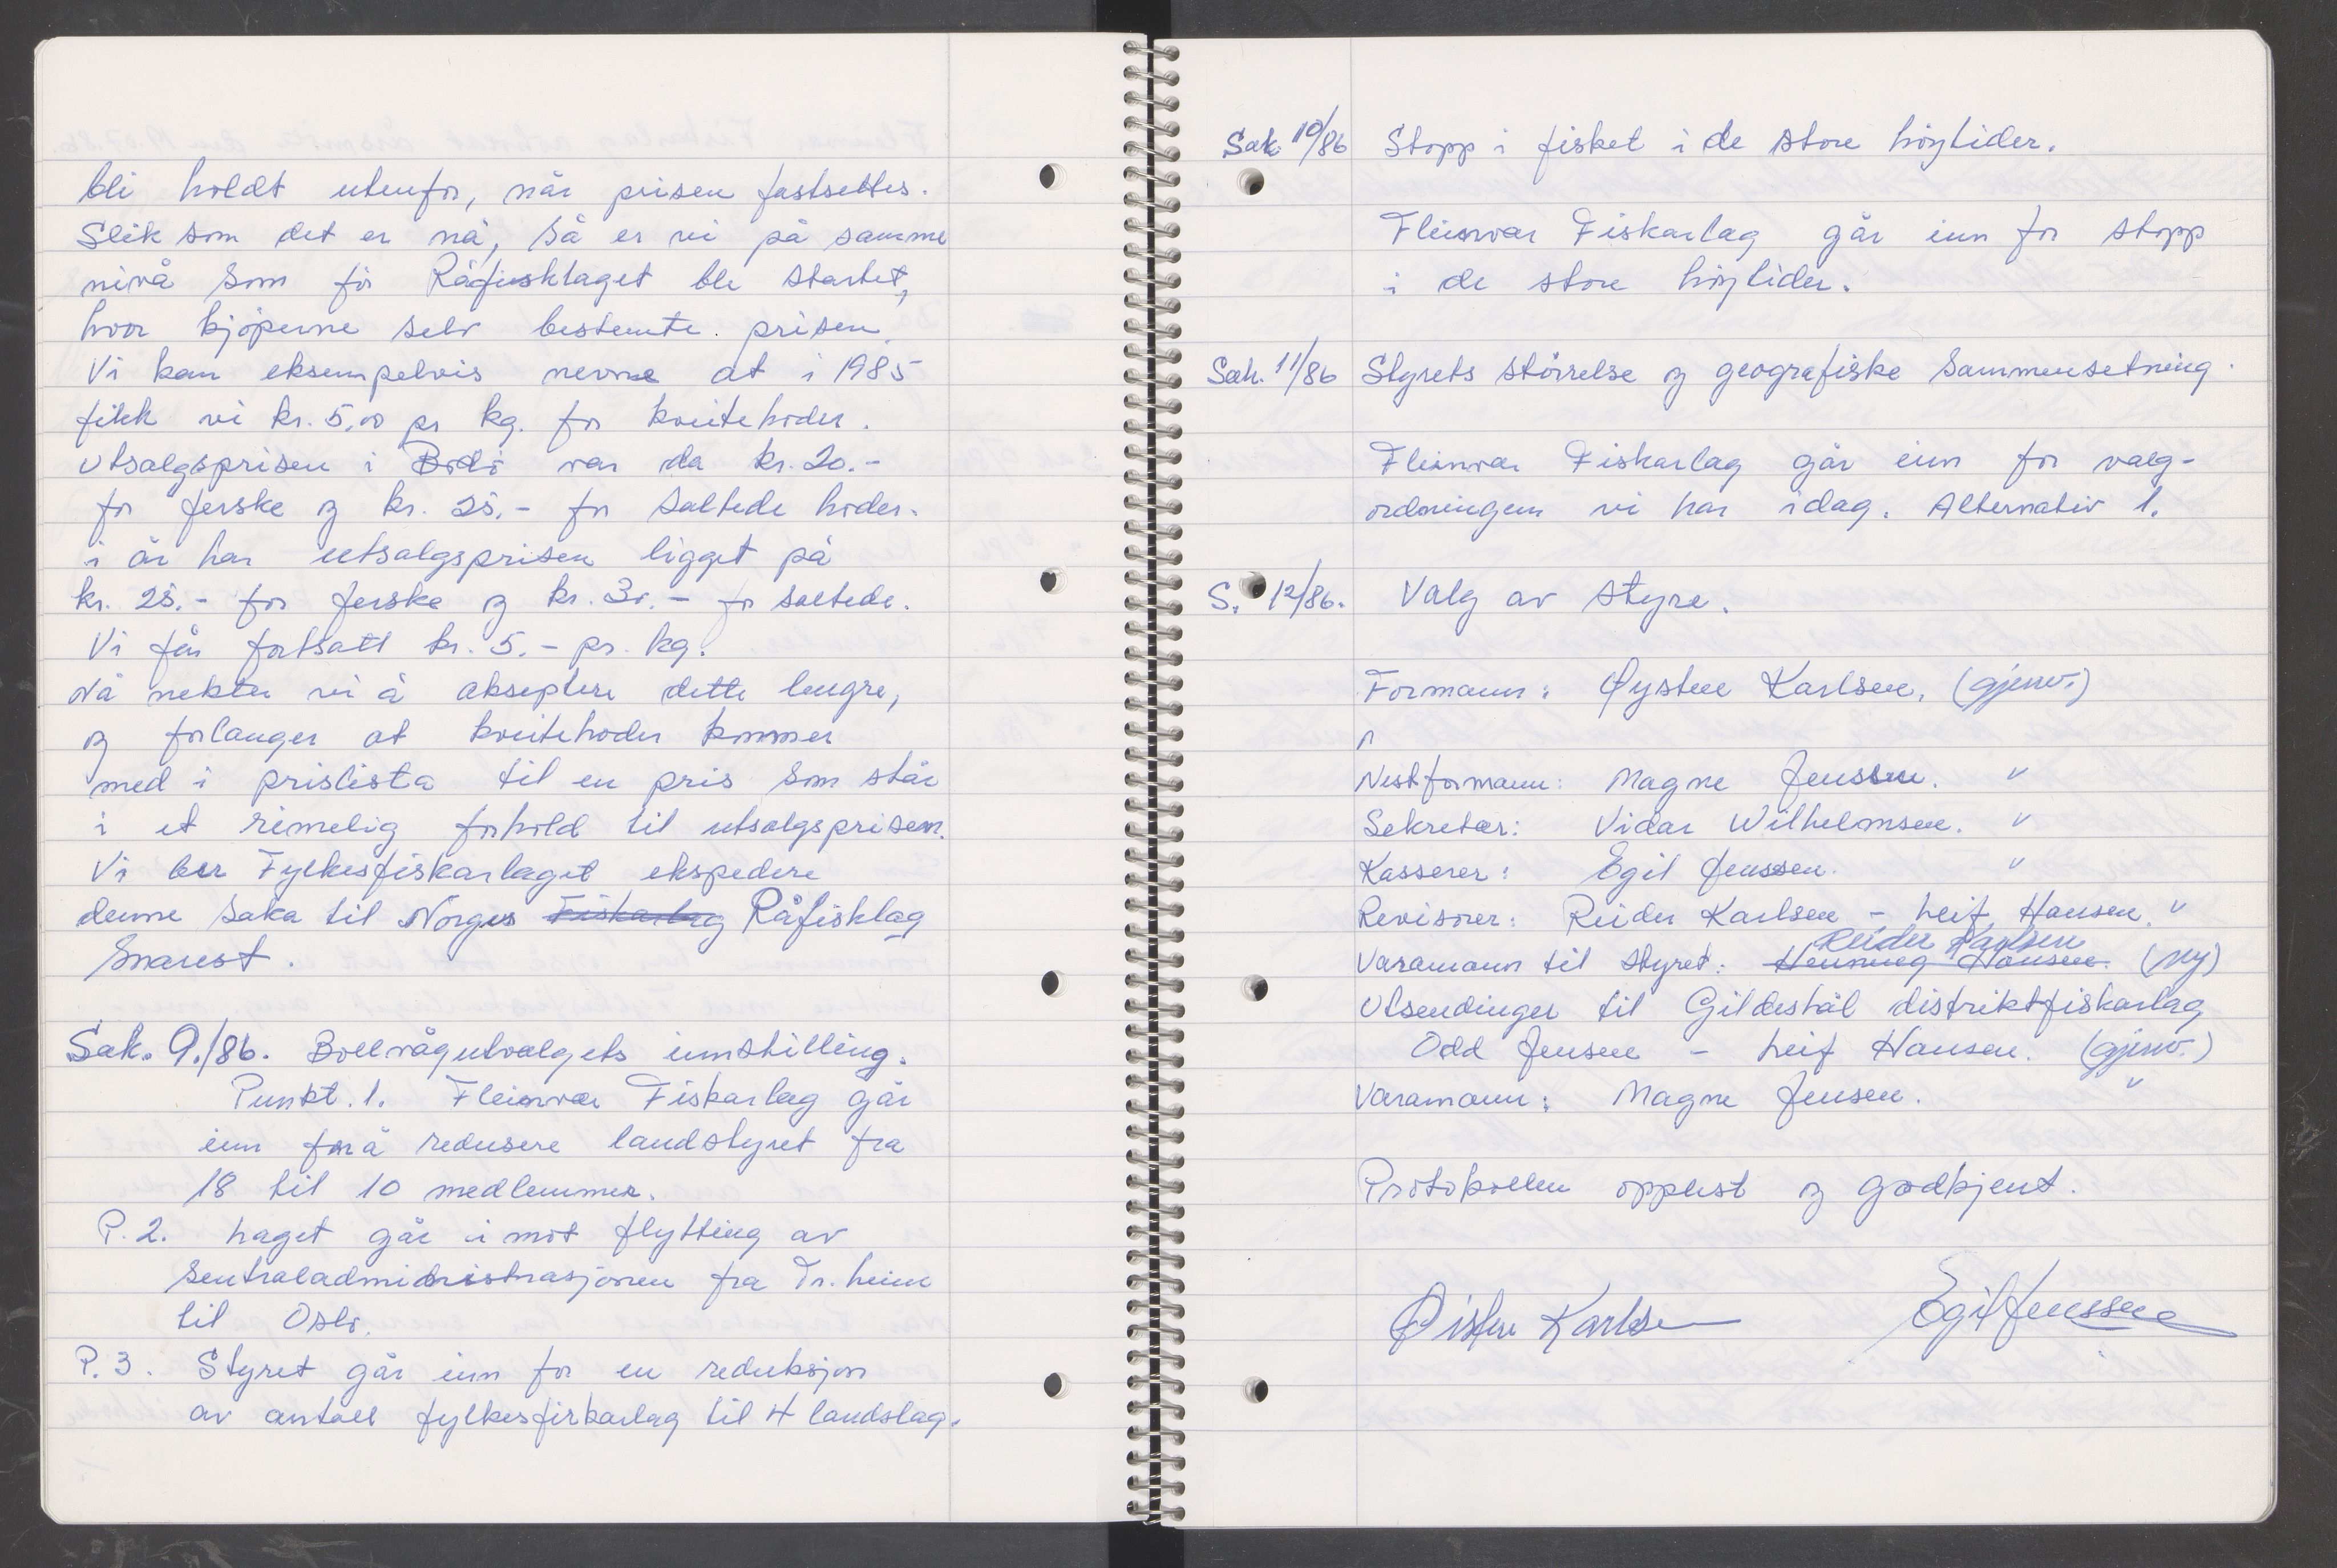 bli holdt utenfor, når prisen fastsettes.
Slik som det er nå, så er vi på samme
nivå som før Råfisklaget ble startet,
hvor kjøperne selv bestemte prisen.
Vi kan eksempelvis nevne at i 1985
fikk vi kr. 5,00 pr kg. for kveitehoder.
Utsalgsprisen i Bodø var da kr. 20.-
for ferske og kr. 25.- for saltede hoder.
i år har utsalgsprisen ligget på
kr. 25.- for ferske og kr. 30.- for saltede.
Vi får fortsatt kr. 5.- pr. kg.
Nå nekter vi å akseptere dette lengre,
og forlanger at kveitehoder kommer
med i prislista til en pris som står
i et rimelig forhold til utsalgsprisen.
Vi ber Fylkesfiskarlaget ekspedere
denne saka til Norges Fiskarlag Råfisklag
snarest.
Sak. 9./86. Bollvågutvalgets innstilling.
Punkt. 1. Fleinvær Fiskarlag går
inn for å redusere landstyret fra
18 til 10 medlemmer.
P. 2. Laget går i mot flytting av
sentraladministrasjonen fra Tr.heim
til Oslo.
P. 3. Styret går inn for en reduksjon
av antall fylkesfirkarlag til 4 landslag.
Sak. 10/86 Stopp i fisket i de store høytider.
Fleinvær Fiskarlag går inn for stopp
i de store høytider.
Sak. 11/86 Styrets størrelse og geografiske sammensetning.
Fleinvær Fiskarlag går inn for valg-
ordningen vi har idag. Alternativ 1.
S. 12/86. Valg av styre.
Formann: Øysten Karlsen, (gjenv.)
Nestformann: Magne Jenssen. "
Sekretær: Vidar Wilhelmsen. "
Kasserer: Egil Jenssen. "
Revisorer: Reider Karlsen - Leif Hansen. "
Reider Karlsen
Varamann til styret: Henning Hansen. (ny)
Utsendinger til Gildeskål distriktfiskarlag
Odd Jensen - Leif Hansen. (gjenv.)
Varamann: Magne Jensen. "
Protokollen opplest og godkjent.
Øisten Karlsen Egil Jenssen